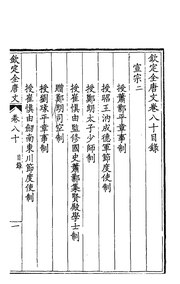 欽定全唐文卷八十目錄
宣宗二
授蕭鄴平章事制
授昭王汭成德軍節度使制
授鄭朗太子少師制
授崔慎由監修國史蕭鄴集賢殿學士制
贈鄭朗司空制
授劉瑑平章事制
授崔慎由劍南東川節度使制
欽定全唐文
卷八十
目錄
一